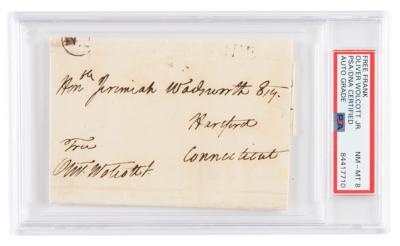 FREE
Hon^ble Jeremiah Wadsworth Esq.
Hartford
Connecticut
Free
Olivr. Wolcott Jr
FREE FRANK
OLIVER WOLCOTT JR.
PSA/DNA CERTIFIED
AUTO GRADE
NM - MT 8
PSA
84417710